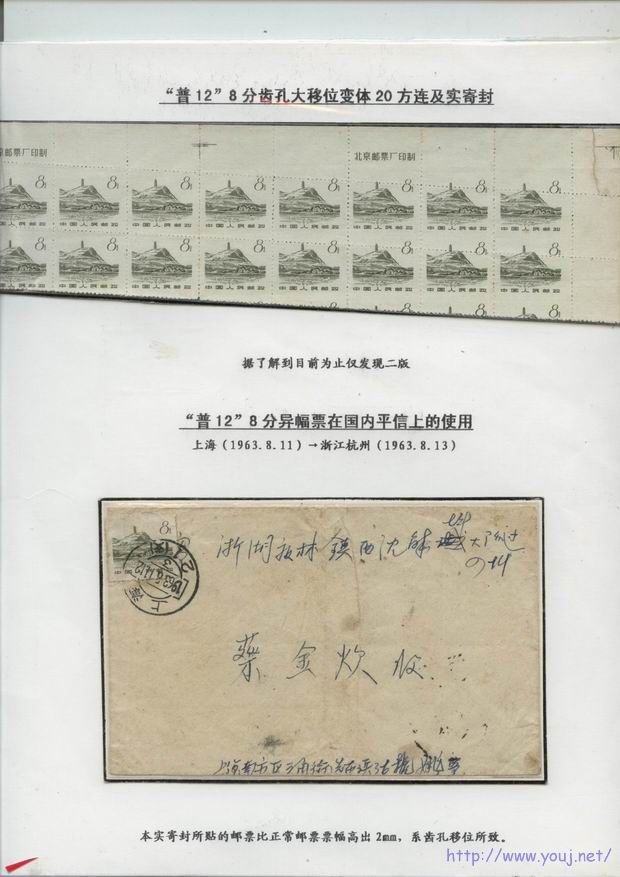 “普12”8分齿孔大移位变体20方连及实寄封
京邮票厂印制
北京邮票厂印制
8分 8分 8分 8分 8分 8分 8分
中国人民邮政 中国人民邮政 中国人民邮政 中国人民邮政 中国人民邮政 中国人民邮政 中国人民邮政
8分 8分 8分 8分 8分 8分 8分
中国人民邮政 中国人民邮政 中国人民邮政 中国人民邮政 中国人民邮政 中国人民邮政 中国人民邮政
据了解到目前为止仅发现二版
“普12”8分异幅票在国内平信上的使用
上海(1963.8.11)→浙江杭州(1963.8.13)
8分
中国
上海
浙湖
镇西沈
蔡金炊
本实寄封所贴的邮票比正常邮票票幅高出2mm,系齿孔移位所致。
http://www.youj.net/